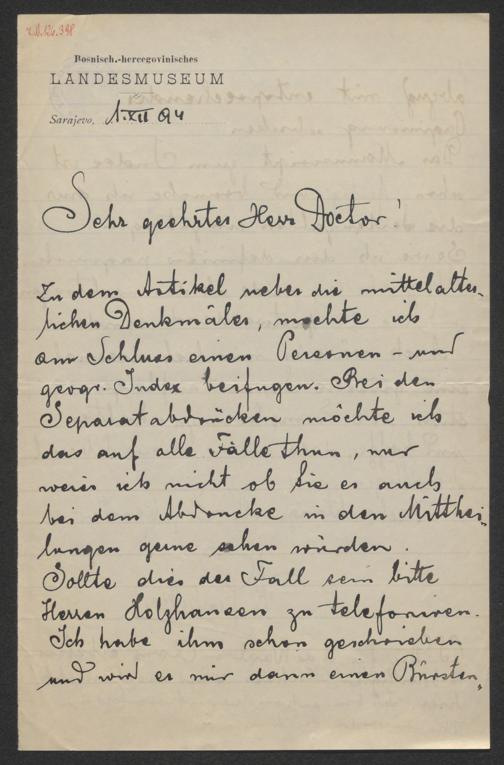 Bosnisch.-hercegovinisches
LANDESMUSEUM
Sarajevo, 1. XII 94
Sehr geehrter Herr Doctor!
Zu dem Artikel ueber die mittelalter-
lichen Denkmäler, mochte ich
am Schluss einen Personen- und
geogr. Index beifugen. Bei den
Separatabdrücken möchte ich
das auf alle Fälle thun, nur
weiss ich nicht ob Sie es auch
bei dem Abdrucke in den Mitthei-
lungen gerne sehen würden.
Sollte dies der Fall sein bitte
Herren Holzhausen zu telefoniren.
Ich habe ihm schon geschrieben
und wird er mir dann einen Bürsten-